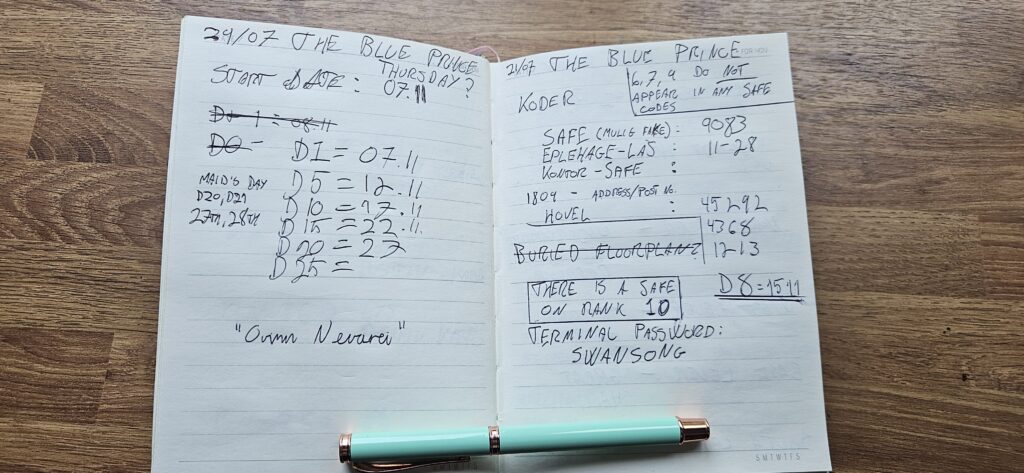 29/07 THE BLUE PRINCE
START DATE: THURSDAY?
07.11
D+1 = 08.11
D0 =
D1 = 07.11
D5 = 12.11
D10 = 17.11
D15 = 22.11.
D20 = 27
D25 =
MAID'S DAY
D20, D21
27TH, 28TH
"Orinn Nevarei"
29/07 THE BLUE PRINCE
KODER
6,7,9 DO NOT
APPEAR IN ANY SAFE
CODES
SAFE (MULIG FAKE): 9083
EPLEHAGE-LÅS : 11-28
KONTOR-SAFE :
1809 - ADDRESS/POST NO.
HOVEL : 45292
4368
BURIED FLOORPLANZ 1213
D8=1511
THERE IS A SAFE
ON RANK 10
TERMINAL PASSWORD:
SWANSONG
SMTWTFS